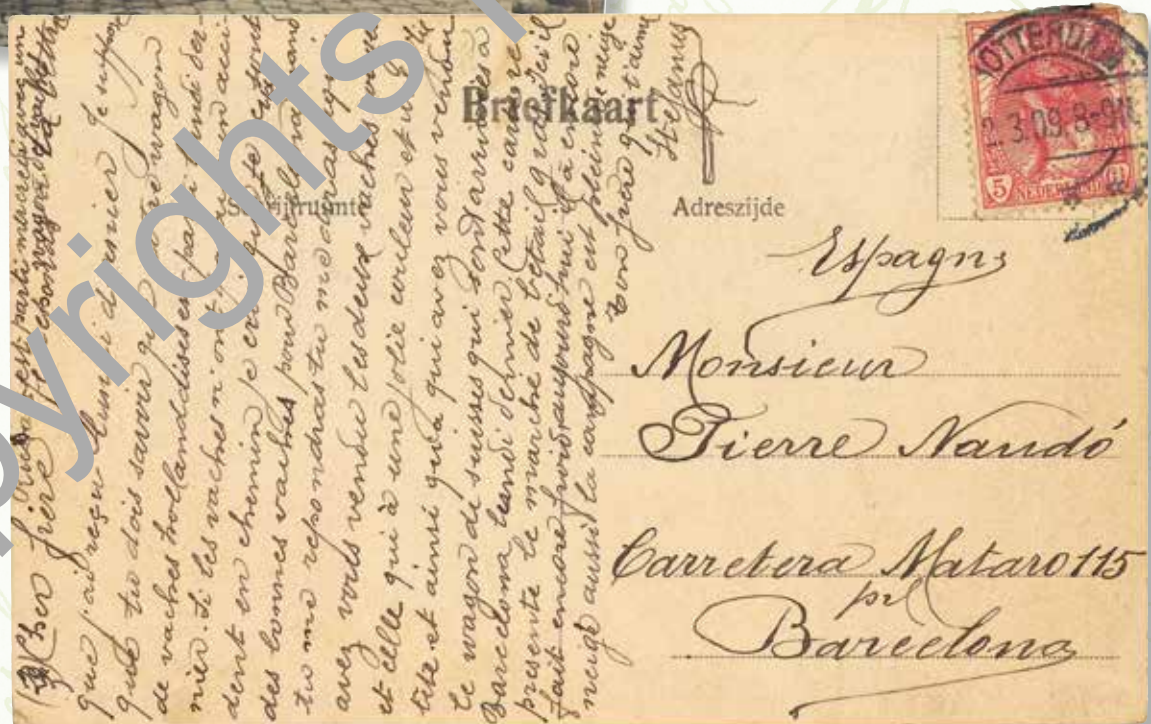 Briefkaart
Schrijfruimte
Adreszijde
OTTERDAM
2.3.09.8-9N
5 NEDERLAND
Espagne
Monsieur
Pierre Nandó
Carretera Mataro 115
Barcelona
Cher frère
que j'ai reçu Je suppose
que tu dois savoir que wagon
de vaches hollanddises par lundi der-
nier. Si les vaches n'ont pas acci-
dent en chemin je crois que ce seront
des bonnes vaches pour Barcelona quand
tu me repondras tu me diras
avez vous vendu les deux vaches
et celle qui à une jolie couleur et
tête et ainsi qu'a qui avez vous vendu
le wagon de suisses qui sont arrivées a
Barcelona lundi dernier Cette carte re
presente le marché de bétail
fait encore froid aujourd'hui il à encore
neigé aussi la campagne est pleine neige
Ton frère qui t'aime
pyrights